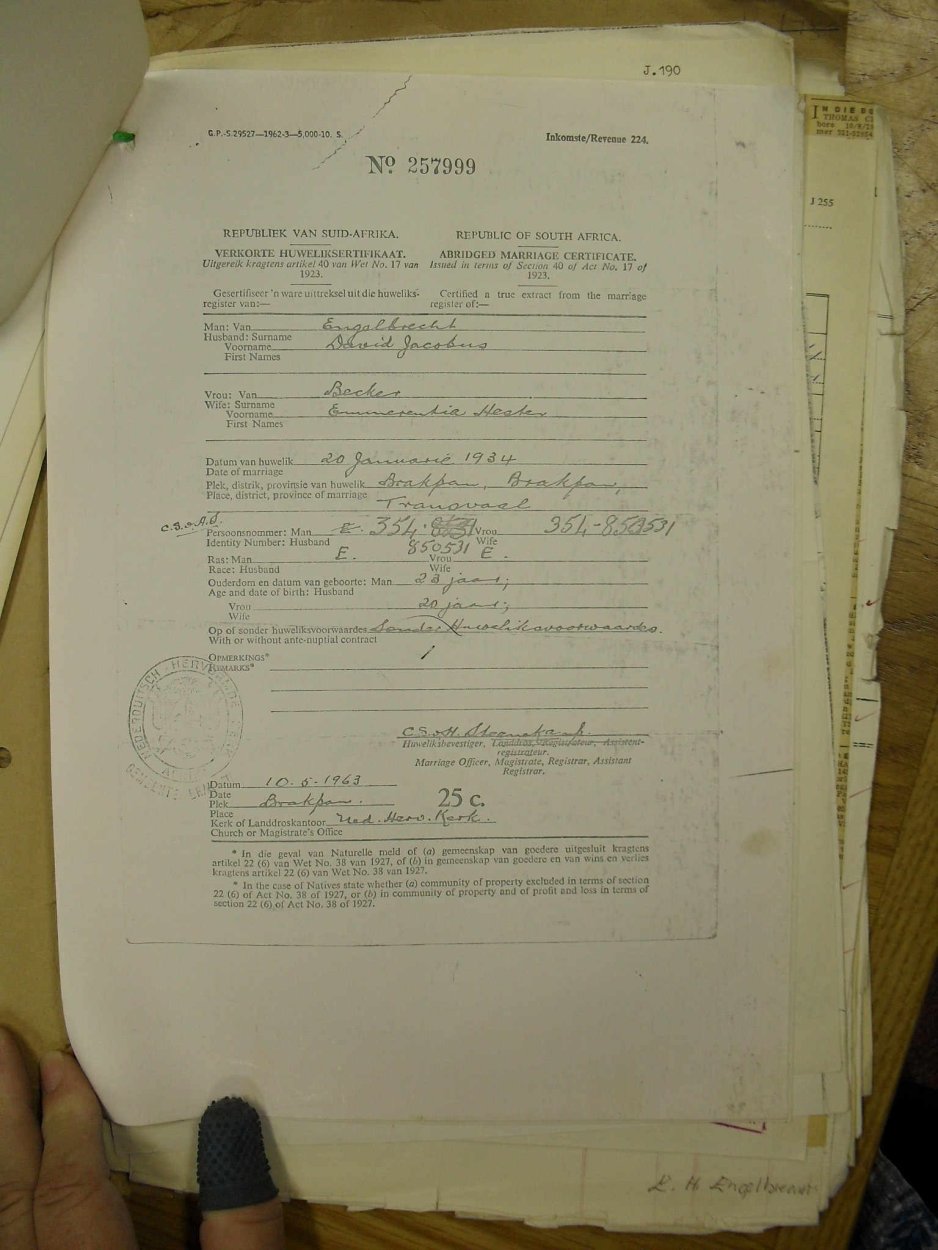 J.190
G.P.-S.29527—1962-3—5,000-10. S.
Inkomste/Revenue 224.
No 257999
REPUBLIEK VAN SUID-AFRIKA.
VERKORTE HUWELIKSERTIFIKAAT.
Uitgereik kragtens artikel 40 van Wet No. 17 van
1923.
Gesertifiseer 'n ware uittreksel uit die huweliks-
register van:—
REPUBLIC OF SOUTH AFRICA.
ABRIDGED MARRIAGE CERTIFICATE.
Issued in terms of Section 40 of Act No. 17 of
1923.
Certified a true extract from the marriage
register of:—
Man: Van Engelbrecht
Husband: Surname
Voorname David Jacobus
First Names
Vrou: Van Becker
Wife: Surname
Voorname Emmerentia Hester
First Names
Datum van huwelik 20 Januarie 1934
Date of marriage
Plek, distrik, provinsie van huwelik Brakpan, Brakpan,
Place, district, province of marriage Transvaal
Persoonsnommer: Man E. 354 Vrou 354-853531
Identity Number: Husband 850531 Wife
Ras: Man E. Vrou E.
Race: Husband Wife
Ouderdom en datum van geboorte: Man 23 jaar;
Age and date of birth: Husband
Vrou 20 jaar;
Wife
Op of sonder huweliksvoorwaardes Sonder Huweliksvoorwaardes.
With or without ante-nuptial contract
OPMERKINGS*
REMARKS*
Huweliksbevestiger, Landdros, Registrateur, Assistent-
registrateur.
Marriage Officer, Magistrate, Registrar, Assistant
Registrar.
Datum 10-5-1963
Date
Plek Brakpan. 25 c.
Place
Kerk of Landdroskantoor Ned. Herv. Kerk.
Church or Magistrate's Office
* In die geval van Naturelle meld of (a) gemeenskap van goedere uitgesluit kragtens
artikel 22 (6) van Wet No. 38 van 1927, of (b) in gemeenskap van goedere en van wins en verlies
kragtens artikel 22 (6) van Wet No. 38 van 1927.
* In the case of Natives state whether (a) community of property excluded in terms of section
22 (6) of Act No. 38 of 1927, or (b) in community of property and of profit and loss in terms of
section 22 (6) of Act No. 38 of 1927.
THOMAS
J 255